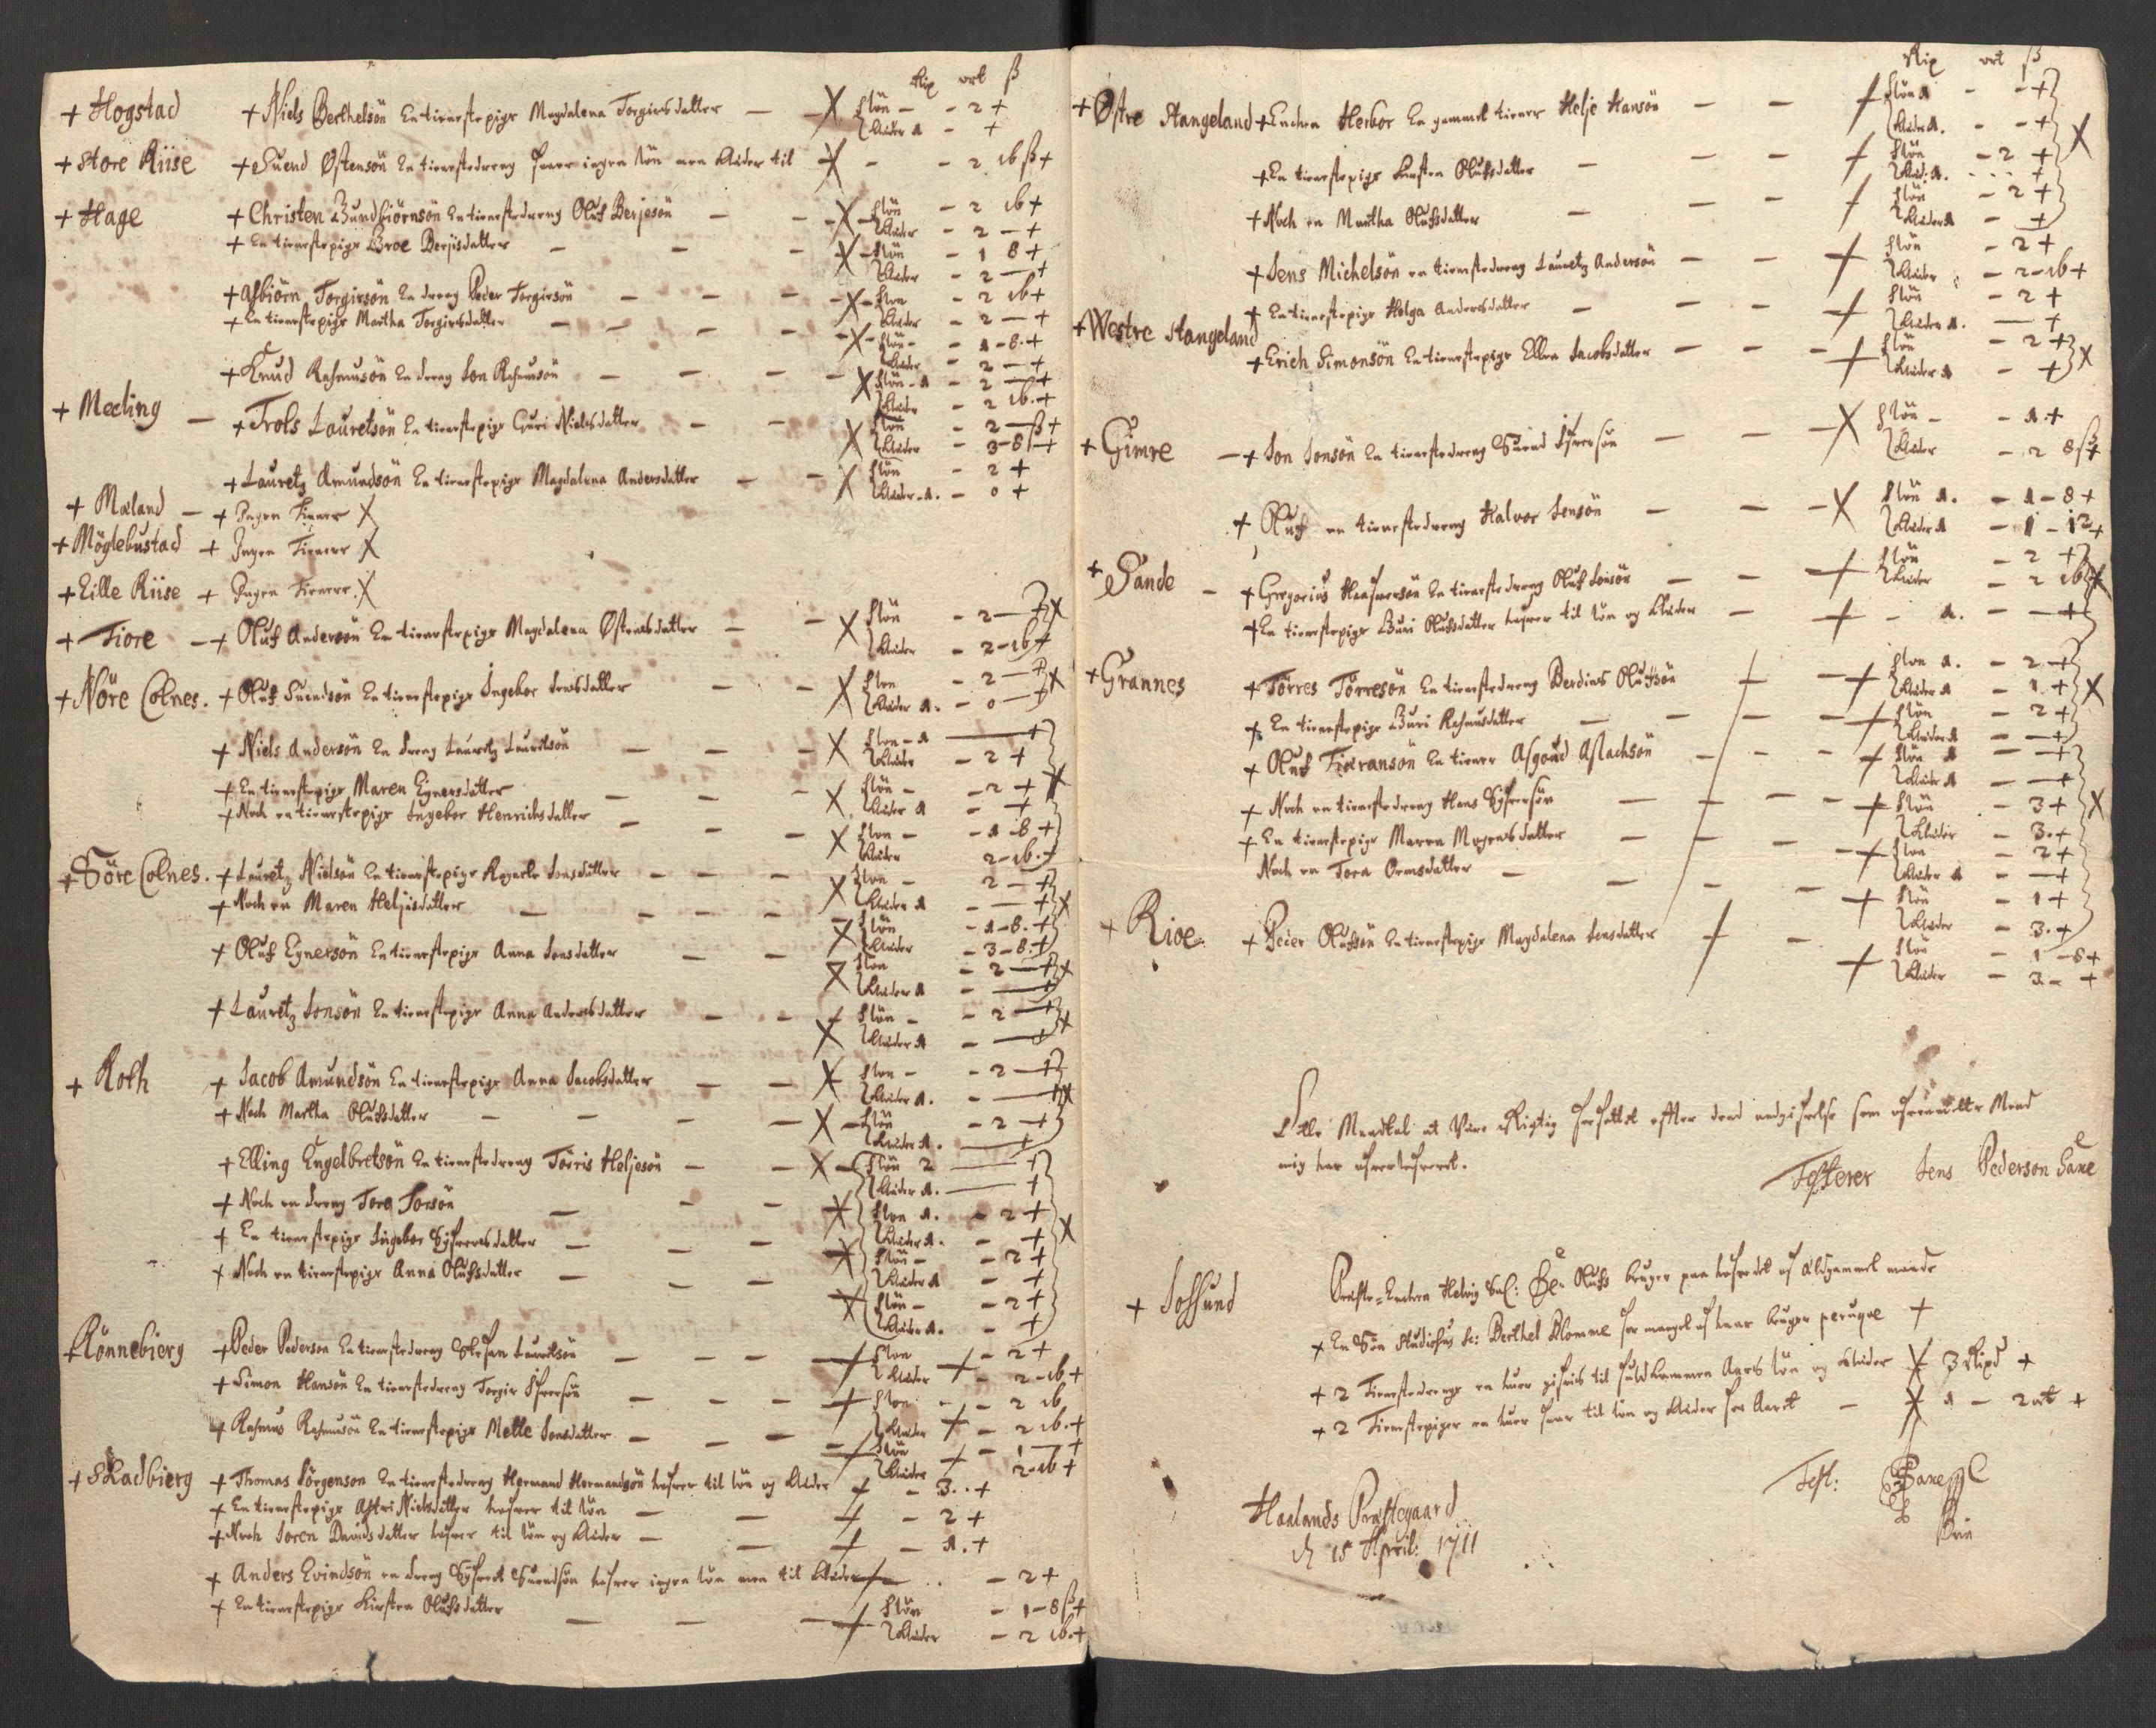 Rix ort ß
+ Hogstad + Niels Berthelsön En tienestepige Magdalena Torgiersdatter — X Lön - - 2 +
Klæder 1 - +
+ Store Riise + Suend Østensön En tienestedreng faaer ingen lön men klæder til X - - 2 16 ß +
+ Hage + Christen Gundbiörnsön En tienestedreng Oluf Berjesön — X Lön - 2 16 +
Klæder - 2 - +
+ En tienestepige Broe Berjisdatter — X Lön - 1 8 +
Klæder - 2 — +
+ Asbiörn Torgiersön En dreng Peder Torgiersön — X Lön - 2 16 +
Klæder - 2 — +
+ En tienestepige Martha Torgiersdatter — X Lön - 1 - 8 +
Klæder - 2 — +
+ Knud Rasmusön En dreng Jon Rasmusön — X Lön - 1 - 2 — +
Klæder - 2 16 +
+ Mecling — + Trols Lauretsön En tienestepige Guri Nielsdatter — X Lön - 2 — ß +
Klæder - 3 - 8 +
+ Lauretz Amundsön En tienestepige Magdalena Andersdatter — X Lön - 2 +
Klæder - 1 - 0 +
+ Mæland — + Ingen Tienere X
+ Möglebustad + Ingen Tienere X
+ Lille Riise + Ingen Tienere X
+ Tiore — + Oluf Andersön En tienestepige Magdalena Østensdatter — X Lön - 2 — + X
Klæder - 2 - 16 +
+ Nöre Colnes. + Oluf Suendsön En tienestepige Ingebor Jensdatter — X Lön - 2 — + X
Klæder 1. - 0 — +
+ Niels Andersön En dreng Lauretz Lauretsön — X Lön - 1 — +
Klæder - 2 +
+ En tienestepige Maren Eynersdatter — X Lön - - 2 + X
Klæder 1 - +
+ Noch en tienestepige Ingebor Henrichsdatter — X Lön - - 1 - 8 +
Klæder 2 - 16 +
+ Söre Colnes. + Lauretz Nielsön En tienestepige Ragnele Jonsdatter — X Lön - 2 — +
Klæder 1 - — + X
+ Noch en Maren Heljisdatter — X Lön - 1 - 8. +
Klæder - 3 - 8. +
+ Oluf Eynersön En tienestepige Anna Jonsdatter — X Lön - 2 — + X
Klæder 1 - — +
+ Lauretz Jonsön En tienestepige Anna Andersdatter — X Lön - - 2 — + X
Klæder 1 - — +
+ Roth + Jacob Amundsön En tienestepige Anna Jacobsdatter — X Lön - - 2 — +
Klæder 1. - — + X
+ Noch Martha Olufsdatter — X Lön - 2 — +
Klæder 1. — +
+ Elling Engelbretsön En tienestedreng Törris Heljesön — X Lön 2 — +
Klæder 1. — +
+ Noch en dreng Tore Torsön — X Lön 1. - 2 +
Klæder 1. - + X
+ En tienestepige Ingebor Syfversdatter — X Lön - - 2 +
Klæder 1 - +
+ Noch en tienestepige Anna Olufsdatter — X Lön - - 2 +
Klæder 1. - +
+ Rönnebierg + Peder Pederson En tienestedreng Stefan Lauritsön — + Lön - 2 +
Klæder + - 2 - 16 +
+ Simon Hansön En tienestedreng Torgier Ifversön — + Lön - - 2 16
Klæder + - 2 16. +
+ Rasmus Rasmusön En tienestepige Mette Jonsdatter — + Lön - 1 — +
Klæder + 2 - 16 +
+ Skadbierg + Thomas Jörgenson En tienestedreng Hermand Hermandsön hafver til lön og klæder + - 3 . . +
+ En tienestepige Astri Nielsdatter hafver til lön — + - 2 +
+ Noch Soren Davidsdatter hafver til lön og klæder — + - 1. +
+ Anders Evindsön en dreng Syfvert Suendsön hafver ingen lön men til klæder + . . - 2 +
+ En tienestepige Kirsten Olufsdatter — + Lön - 1 - 8 ß +
Klæder - 2 16. +
Rix ort ß
+ Østre Stangeland + Enchen Herbor En gammel tiener Helje Hansön — + Lön 1 - - +
Klæder 1. - - + X
+ En tienestepige Kirsten Olufsdatter — + Lön - 2 +
Klæd: 1. . . . +
+ Noch en Martha Olufsdatter — + Lön - 2 +
Klæder 1 - +
+ Jens Michelsön en tienestedreng Lauretz Andersön — + Lön - 2 +
Klæder - 2 - 16 +
+ En tienestepige Helga Andersdatter — + Lön - 2 +
Klæder 1. — +
+ Westre Stangeland
+ Erich Simonsön En tienestepige Ellen Jacobsdatter — + Lön - 2 + X
Klæder 1 - +
+ Gimre — + Jon Jonsön En tienestedreng Suend Ifversön — X Lön - - 1. +
Klæder - 2 8 ß +
+ Oluf en tienestedreng Halvor Jensön — X Lön 1. - 1 - 8 +
Klæder 1 - 1 - 12 +
+ Sande - + Gregorius Haagensön En tienestedreng Oluf Jonsön — + Lön - 2 +
Klæder - 2 16 + X
+ En tienestepige Guri Olufsdatter hafver til lön og klæder — + - 1. - — +
+ Grannes + Törres Törresön En tienestedreng Berdines Olufsön + Lön 1. - 2 - +
Klæder 1 - 1. + X
+ En tienestepige Guri Rasmusdatter — + Lön - 2 +
Klæder 1 - - +
+ Oluf Tioransön En tiener Asgoud Aslachsön — + Lön 1 - — +
Klæder 1 - — +
+ Noch en tienestedreng Hans Syfversön — + Lön - 3 + X
Klæder - 3. +
+ En tienestepige Maren Mogensdatter — + Lön - 2 +
Klæder 1 - — +
Noch en Tora Ormsdatter — + Lön - 1 +
Klæder - 3. +
+ Rioe. + Peder Olufsön En tienestepige Magdalena Jensdatter + - + Lön - 1 - 8 +
Klæder - 3 - +
Dette Mandtal at Være Rigtig forfattet efter dend angifvelse som ofvenmelte Mend
mig har ofverlefveret.
Testerer Jens Pederson Saxe
+ Jossund Præste-Enchen Helvig Sal: Hr. Olufs bruger paa hofvedet af Aldgammel maade
+ En Sön Studiosus Sr: Berthel Blomme for mangel af haar bruger peruqve +
+ 2 Tienestedrenge en huer gifvis til fuldkommen Aars lön og klæder X 3 Rixd +
+ 2 Tienestepiger en huer faar til lön og klæder for Aaret — X 1 - 2 ort +
Test: Saxe
Haalands Præstegaard
d 15 April: 1711